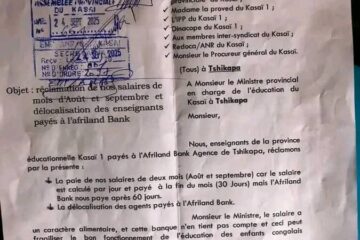 ASSEMBLEE PROVINCIALE
DU KASAI
24 SEPT 2025
✓ Madame la proved du Kasaï 1 ;
✓ L'IPP du Kasaï 1 ;
✓ Dinacope du Kasaï 1 ;
✓ Aux membres inter-syndicat du Kasaï 1 ;
✓ Redoca/ANR du Kasaï ;
✓ Monsieur le Procureur général du Kasaï.
(Tous) à Tshikapa
Objet : réclamation de nos salaires de
mois d'Août et septembre et
délocalisation des enseignants
payés à l'afriland Bank
A Monsieur le Ministre provincial
en charge de l'éducation du
Kasaï à Tshikapa
Monsieur,
Nous, enseignants de la province
éducationnelle Kasaï 1 payés à l'Afriland Bank Agence de Tshikapa, réclamons
par la présente :
La paie de nos salaires de deux mois (Août et septembre) car le salaire
est calculé par jour et payé à la fin du mois (30 Jours) mais l'Afriland
Bank nous paye après 60 jours.
La délocalisation des agents payés à l'Afriland Bank.
Monsieur le Ministre, le salaire a
un caractère alimentaire, et cette banque n'en tient pas compte et ceci peut
fragiliser le bon fonctionnement de l'éducation des enfants congolais